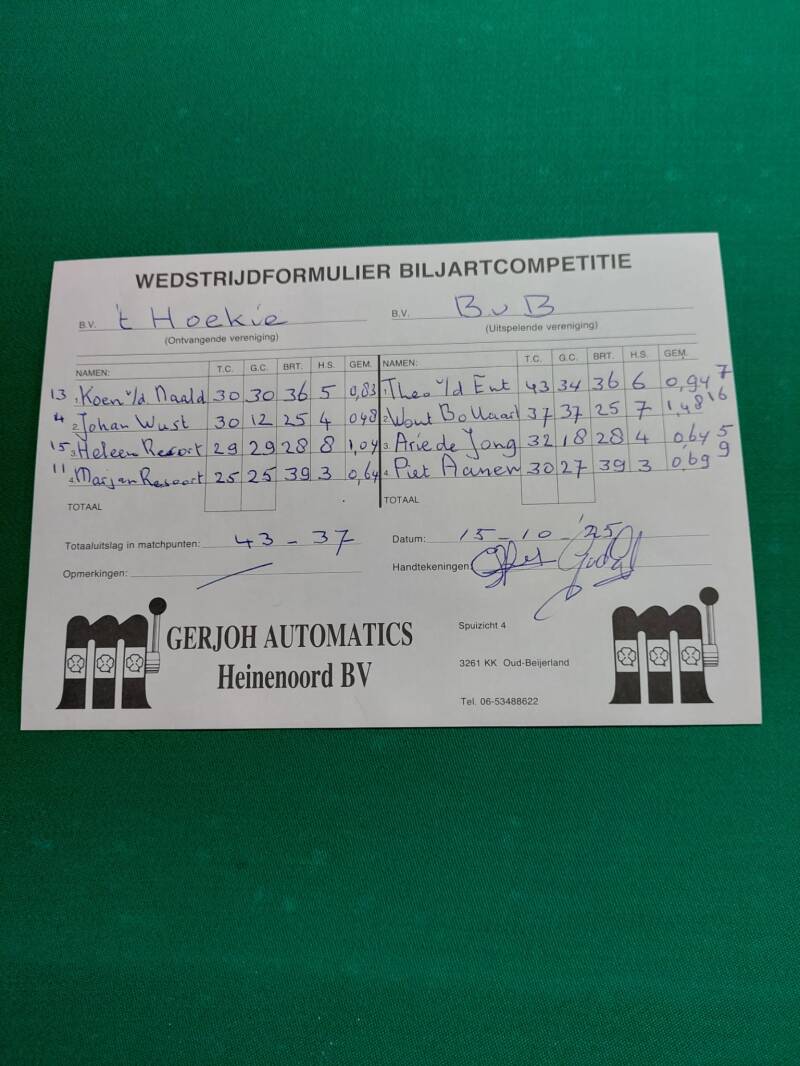 WEDSTRIJDFORMULIER BILJARTCOMPETITIE
B.V. 't Hoekie B.V. B v B
(Ontvangende vereniging) (Uitspelende vereniging)
NAMEN: T.C. G.C. BRT. H.S. GEM. NAMEN: T.C. G.C. BRT. H.S. GEM.
13 1 Koen v/d Naald 30 30 36 5 0,83 1 Theo v/d Ent 43 34 36 6 0,94 7
4 2 Johan Wust 30 12 25 4 048 2 Wout Bollaart 37 37 25 7 1,48 16
15 3 Heleen Resoort 29 29 28 8 1,04 3 Arie de Jong 32 18 28 4 0,64 5
11 4 Marjan Resoort 25 25 39 3 0,64 4 Piet Aanen 30 27 39 3 0,69 9
TOTAAL TOTAAL
Totaaluitslag in matchpunten: 43 - 37 Datum: 15-10-'25
Opmerkingen: Handtekeningen
GERJOH AUTOMATICS
Heinenoord BV
Spuizicht 4
3261 KK Oud-Beijerland
Tel. 06-53488622